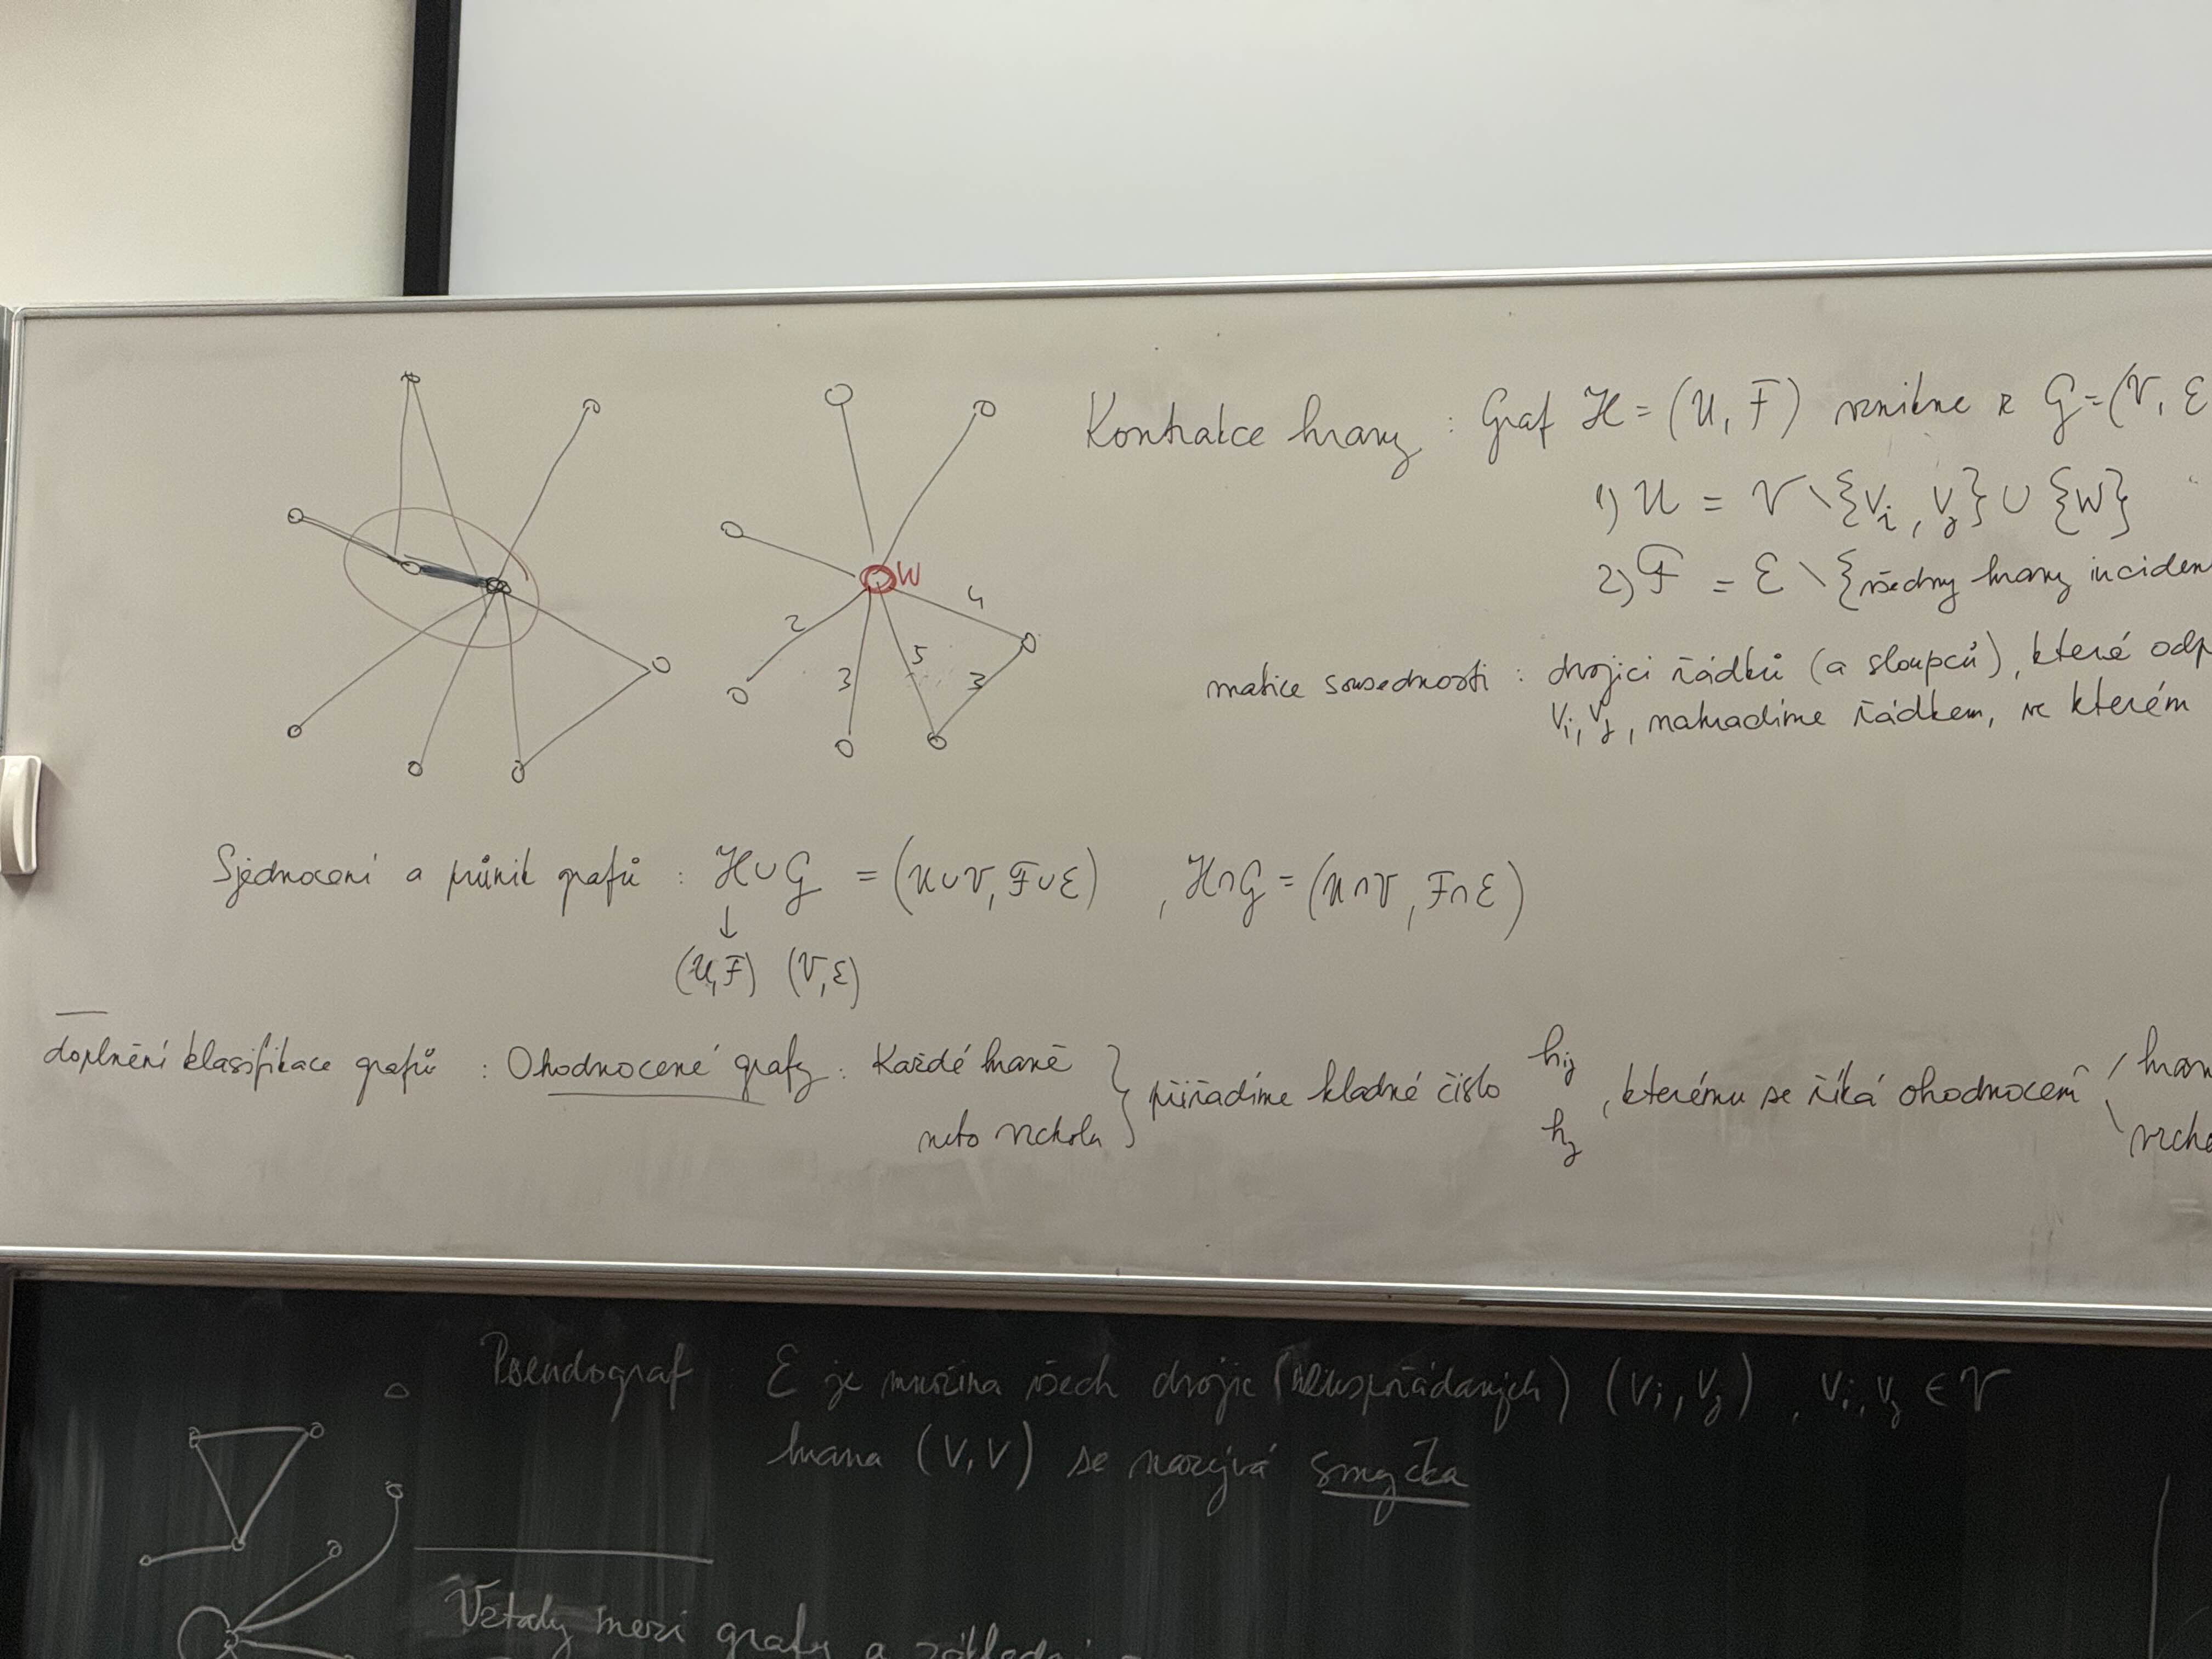 Kontrakce hrany : Graf H = (U, F) vznikne z G = (V, E
1) U = V \ {Vi, Vj} ∪ {W}
2) F = E \ {všechny hrany inciden
W
2
3
5
4
3
matice sousednosti : dvojici řádků (a sloupců), které odp
Vi, Vj, nahradíme řádkem, ve kterém
Sjednocení a průnik grafů : H∪G = (U∪V, F∪E) , H∩G = (U∩V, F∩E)
↓
(U,F) (V,E)
doplnění klasifikace grafů : Ohodnocené grafy : Každé hraně } přiřadíme kladné číslo hij , kterému se říká ohodnocení / hran
nebo vrcholu hj \ vrcho
Pseudograf E je množina všech dvojic (neuspořádaných) (Vi, Vj) , Vi, Vj ∈ V
hrana (V, V) se nazývá smyčka
Vztahy mezi grafy a základní